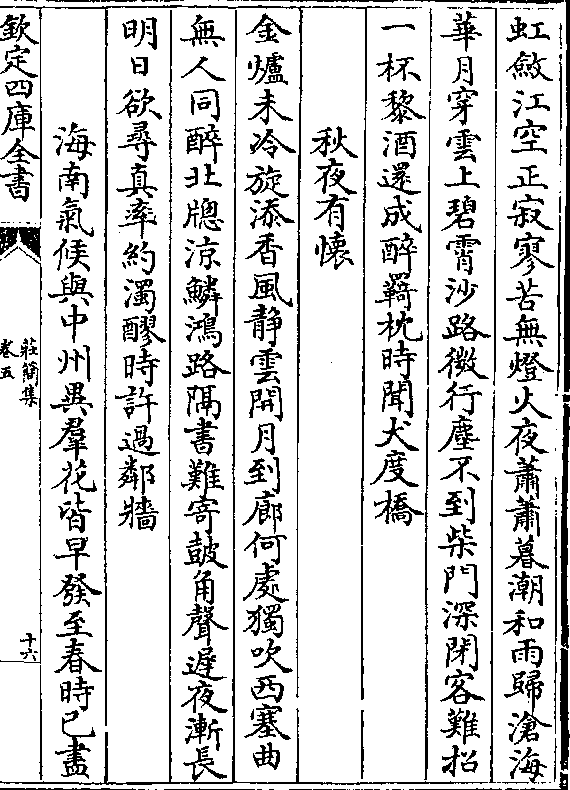 虹斂江空正寂寥苦無燈火夜蕭蕭暮潮和雨歸滄海
華月穿雲上碧霄沙路微行塵不到柴門深閉客難招
一杯藜酒還成醉羇枕時聞犬度橋
秋夜有懷
金爐未冷旋添香風静雲開月到廊何處獨吹西塞曲
無人同醉北牕涼鱗鴻路隔書難寄鼓角聲遲夜漸長
明日欲尋真率約濁醪時許過鄰牆
海南氣候與中州異羣花皆早發至春時已盡
欽定四庫全書
莊簡集
卷五
十六